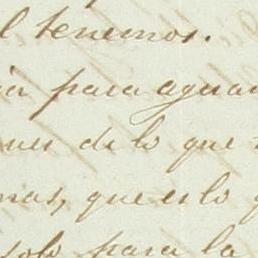 l tenemos.
para
de lo que
mas, que es lo
solo para la